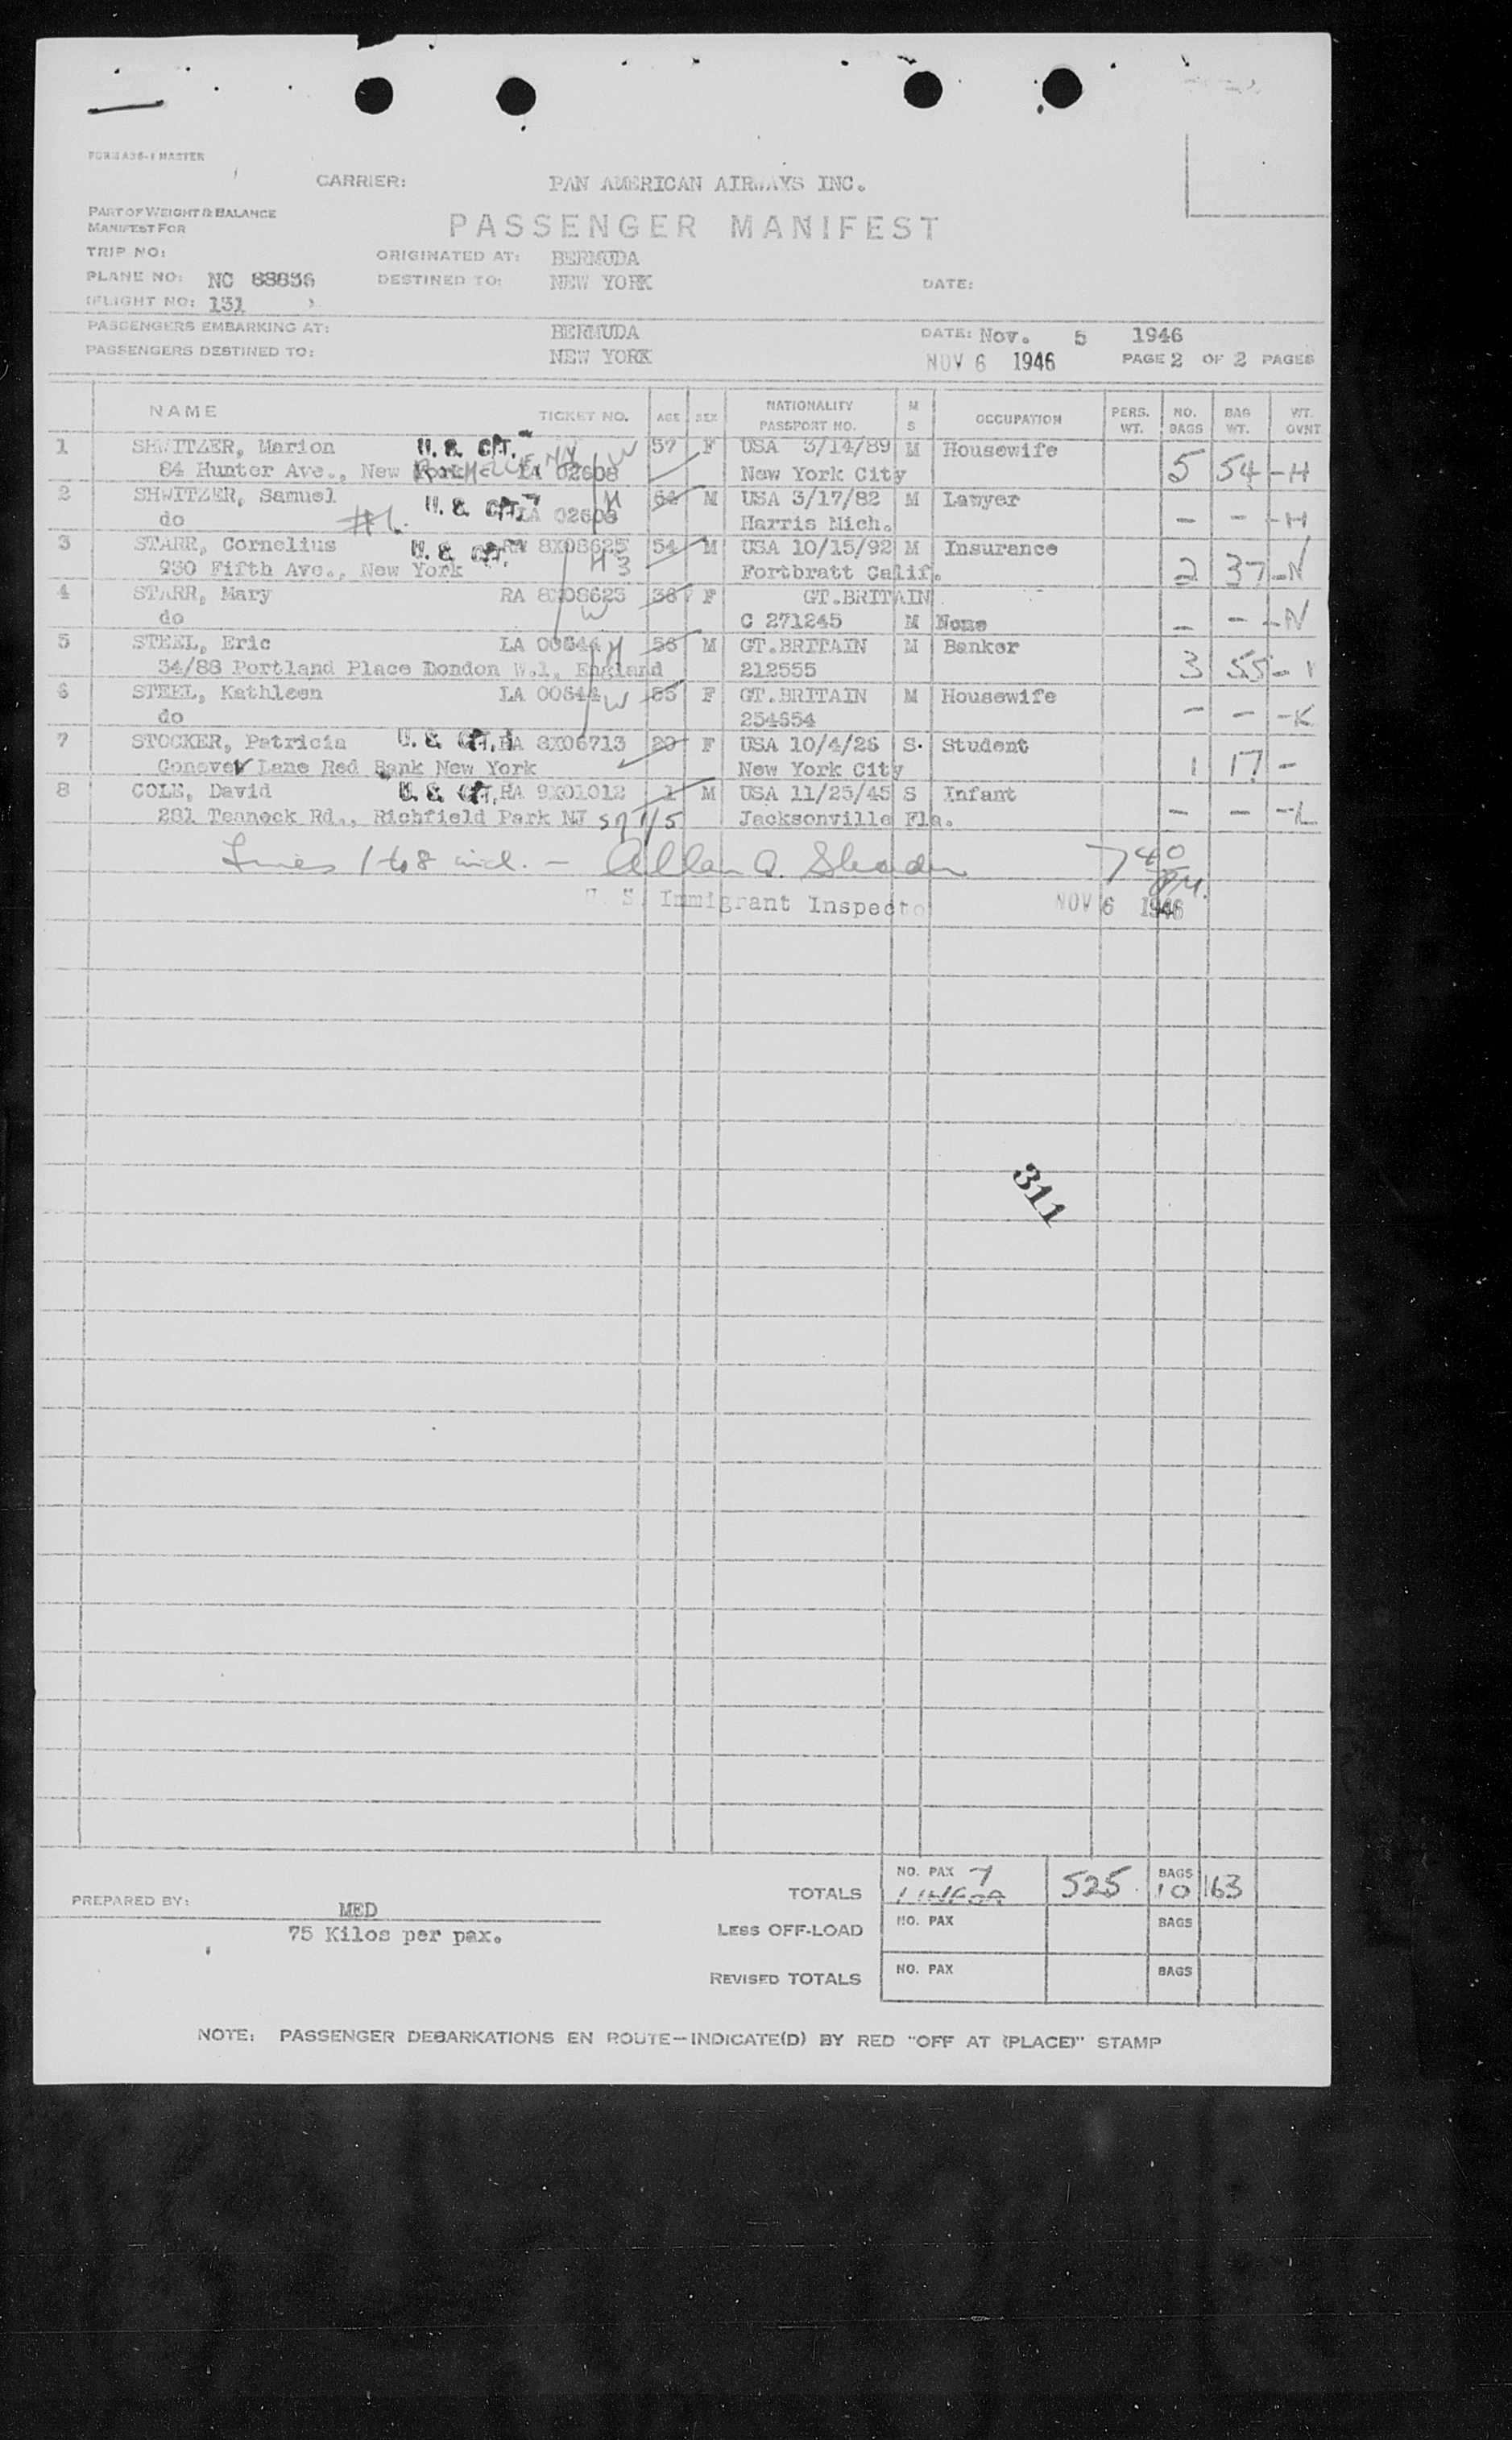 FORM A35-1 MASTER
CARRIER: PAN AMERICAN AIRWAYS INC.
PART OF WEIGHT & BALANCE
MANIFEST FOR
PASSENGER MANIFEST
TRIP NO: ORIGINATED AT: BERMUDA
PLANE NO: NC 88836 DESTINED TO: NEW YORK DATE:
FLIGHT NO: 131
PASSENGERS EMBARKING AT: BERMUDA DATE: Nov. 5 1946
PASSENGERS DESTINED TO: NEW YORK NOV 6 1946 PAGE 2 OF 2 PAGES
NAME TICKET NO. AGE SEX NATIONALITY PASSPORT NO. M S OCCUPATION PERS. WT. NO. BAGS BAG WT. WT. OVNT
1 SHWITZER, Marion U. S. CIT. W 57 F USA 3/14/89 M Housewife
84 Hunter Ave., New Rochelle NY LA 02608 New York City 5 54 - H
2 SHWITZER, Samuel U. S. CIT. H 64 M USA 3/17/82 M Lawyer
do #1. LA 02608 Harris Mich. - - - H
3 STARR, Cornelius U. S. CIT. RA 8X08623 54 M USA 10/15/92 M Insurance
930 Fifth Ave., New York H 3 Fortbratt Calif. 2 37 - N
4 STARR, Mary RA 8X08623 36 F GT.BRITAIN
do W C 271245 M None - - - N
5 STEEL, Eric LA 00644 H 56 M GT.BRITAIN M Banker
34/88 Portland Place London W.1, England 212555 3 55 -
6 STEEL, Kathleen LA 00644 W 55 F GT.BRITAIN M Housewife
do 254654 - - - K
7 STOCKER, Patricia U. S. CIT. RA 8X06713 20 F USA 10/4/26 S. Student
Conover Lane Red Bank New York New York City 1 17 -
8 COLE, David U. S. CIT. RA 9X01012 1 M USA 11/25/45 S Infant
281 Teaneck Rd., Richfield Park NJ Jacksonville Fla. - - - L
Lines 1 to 8 incl. - Allan Q. 7 40 PM.
U. S. Immigrant Inspector NOV 6 1946
311
PREPARED BY: MED
75 Kilos per pax.
TOTALS NO. PAX 7 525 BAGS 10 163
LESS OFF-LOAD NO. PAX BAGS
REVISED TOTALS NO. PAX BAGS
NOTE: PASSENGER DEBARKATIONS EN ROUTE—INDICATE(D) BY RED "OFF AT (PLACE)" STAMP